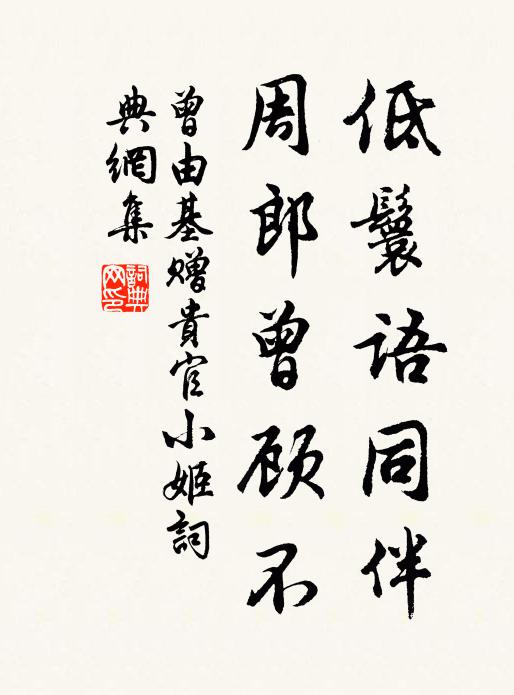 低鬟語同伴
周郎曾顾不
曾由基赠貴官小姬詞
典網集
詞典
网印